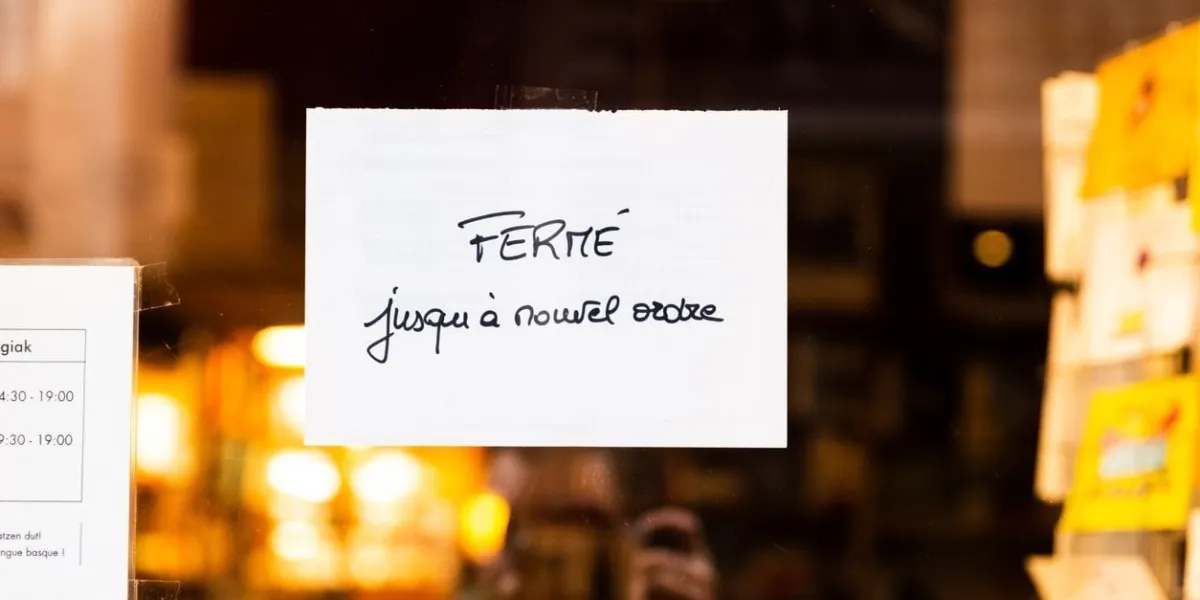 FERMÉ
jusqu'à nouvel ordre
giak
4:30 - 19:00
9:30 - 19:00
atzen dut!
ngue basque !